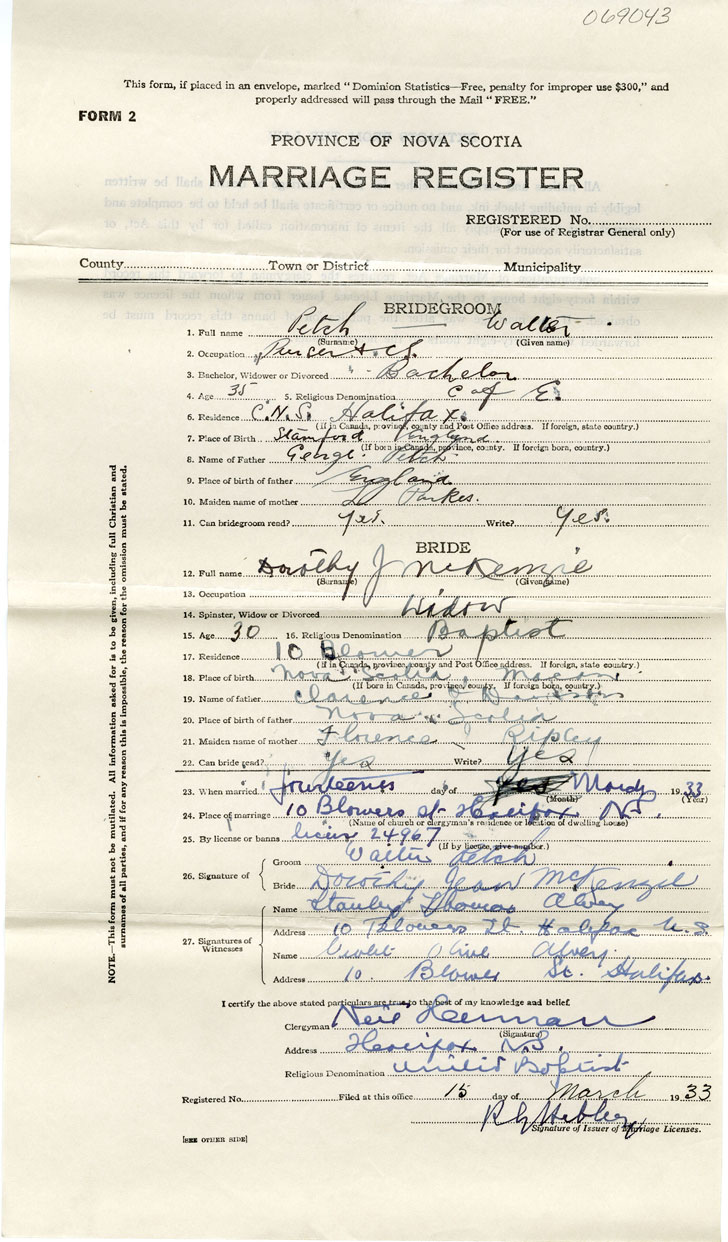 069043
This form, if placed in an envelope, marked "Dominion Statistics—Free, penalty for improper use $300," and
properly addressed will pass through the Mail "FREE."
FORM 2
PROVINCE OF NOVA SCOTIA
MARRIAGE REGISTER
REGISTERED No.
(For use of Registrar General only)
County Town or District Municipality
BRIDEGROOM
1. Full name Petch Walter
(Surname) (Given name)
2. Occupation
3. Bachelor, Widower or Divorced Bachelor
4. Age 35 5. Religious Denomination C of E.
6. Residence C.N.S. Halifax
(If in Canada, province, county and Post Office address. If foreign, state country.)
7. Place of Birth Stamford England
(If born in Canada, province, county. If foreign born, country.)
8. Name of Father George Petch
9. Place of birth of father England
10. Maiden name of mother Parkes.
11. Can bridegroom read? Yes. Write? Yes.
BRIDE
12. Full name Dorothy J McKenzie
(Surname) (Given name)
13. Occupation
14. Spinster, Widow or Divorced Widow
15. Age 30 16. Religious Denomination Baptist
17. Residence 10 Blower
(If in Canada, province, county and Post Office address. If foreign, state country.)
18. Place of birth Nova Scotia, Maccan
(If born in Canada, province, county. If foreign born, country.)
19. Name of father Clarence J
20. Place of birth of father Nova Scotia
21. Maiden name of mother Florence Ripley
22. Can bride read? Yes Write? Yes
23. When married day of 1933
(Month) (Year)
24. Place of marriage 10 Blowers st Halifax N.S.
(Name of church or clergyman's residence or location of dwelling house)
25. By license or banns 24967
(If by licence, give number.)
26. Signature of
Groom Walter Petch
Bride Dorothy Jean McKenzie
27. Signatures of Witnesses
Name Stanley Thomas Alvey
Address 10 Blowers St. Halifax N.S.
Name Violet Olive Alvey.
Address 10 Blower St. Halifax.
I certify the above stated particulars are true to the best of my knowledge and belief.
Clergyman Neil Herman
(Signature)
Address Halifax N.S.
Religious Denomination United Baptist
Registered No. Filed at this office 15 day of March 1933
Signature of Issuer of Marriage Licenses.
[SEE OTHER SIDE]
NOTE.—This form must not be mutilated. All information asked for is to be given, including full Christian and
surnames of all parties, and if for any reason this is impossible, the reason for the omission must be stated.